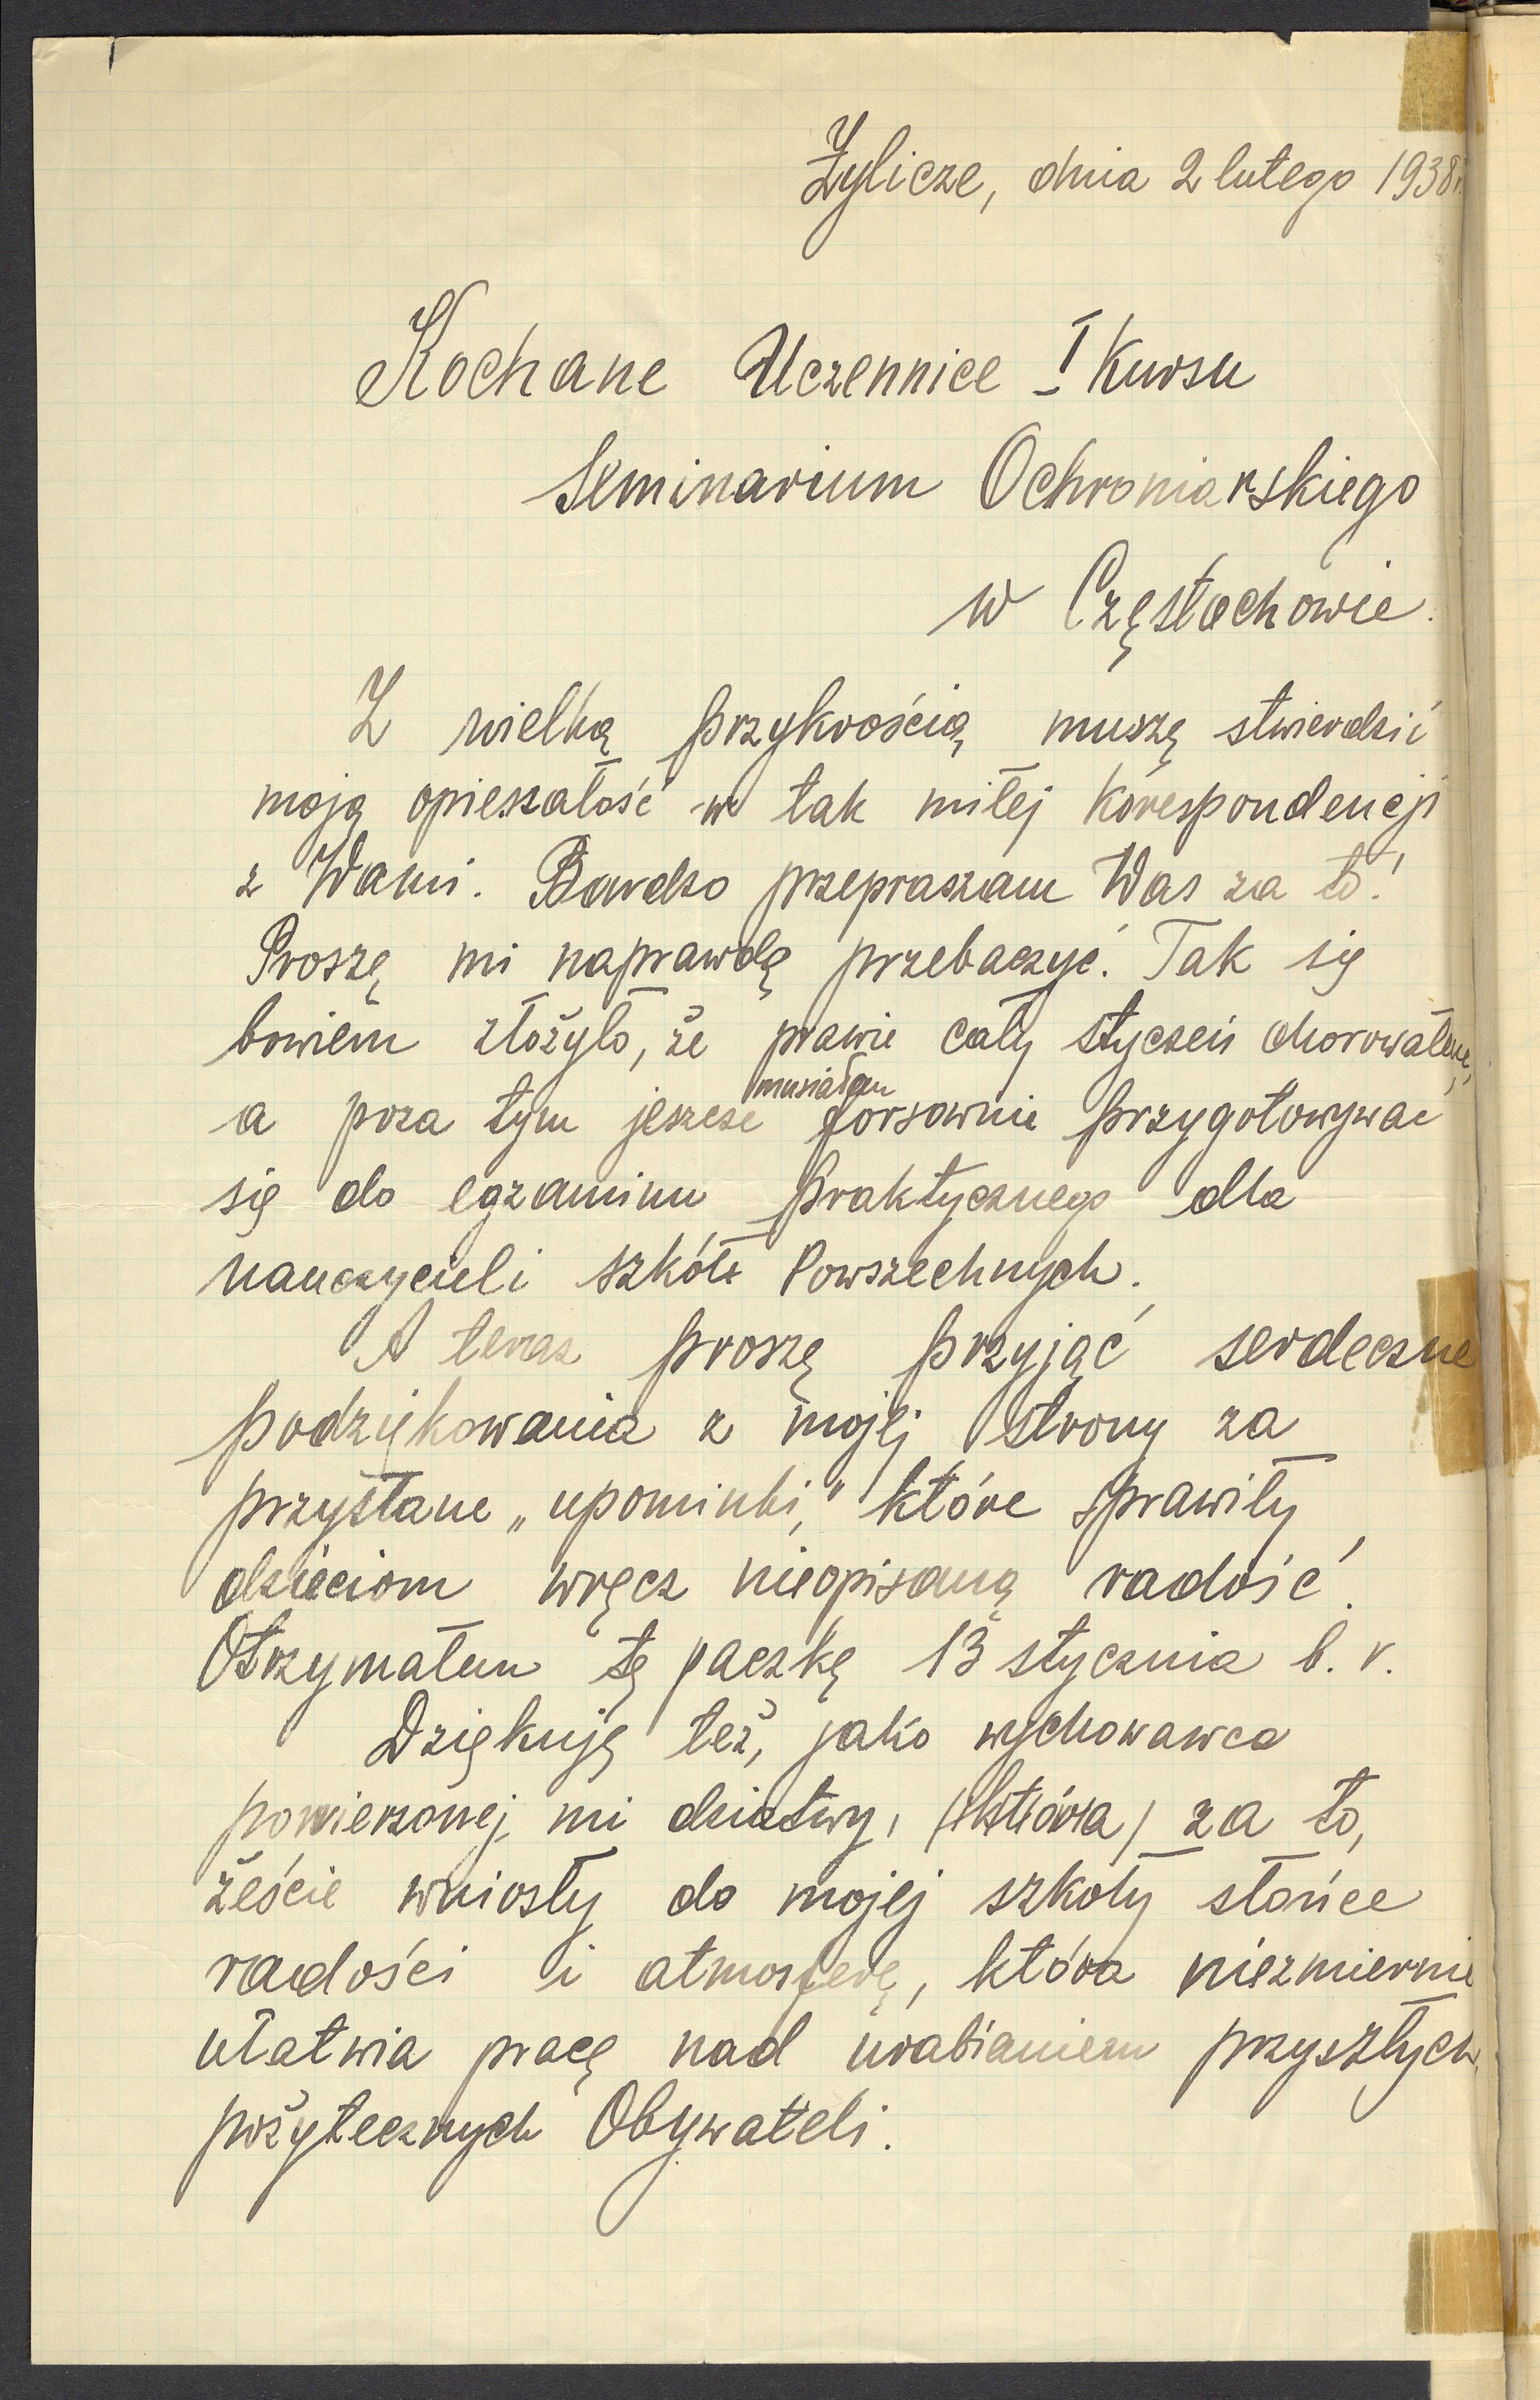 Żylicze, dnia 2 lutego 1938r.
Kochane Uczennice I Kursu
Seminarium Ochroniarskiego
w Częstochowie.
Z wielką przykrością muszę stwierdzić
moją opieszałość w tak miłej korespondencji
z Wami. Bardzo przepraszam Was za to!
Proszę mi naprawdę przebaczyć. Tak się
bowiem złożyło, że prawie cały styczeń chorowałem,
musiałem
a poza tym jeszcze forsownie przygotowywać
się do egzaminu praktycznego dla
nauczycieli szkół Powszechnych.
A teraz proszę przyjąć serdeczne
podziękowania z mojej strony za
przysłane „upominki," które sprawiły
dzieciom wręcz nieopisaną radość.
Otrzymałem tę paczkę 13 stycznia b. r.
Dziękuję też, jako wychowawca
powierzonej mi dziatwy, (która) za to,
żeście wniosły do mojej szkoły słońce
radości i atmosferę, która niezmiernie
ułatwia pracę nad urabianiem przyszłych
pożytecznych Obywateli.